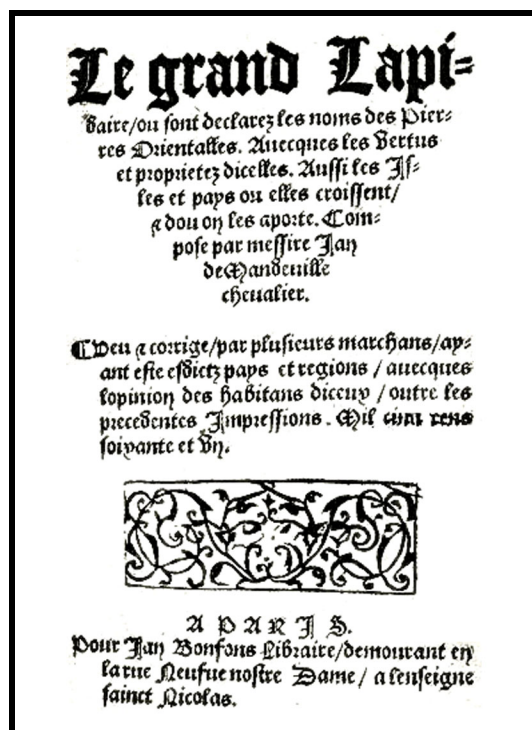 Le grand Lapi=
daire/ou sont declarez les noms des Pier=
res Orientalles. Auecques les Vertus
et proprietez dicelles. Aussi les Js=
les et pays ou elles croissent/
⁊ dou on les aporte. Com=
pose par messire Jan
de Mandeuille
cheualier.
¶ Veu ⁊ corrige/par plusieurs marchans/ay=
ant este esdictz pays et regions / auecques
lopinion des habitans diceux / outre les
precedentes Jmpressions. Mil cinq cens
soixante et Vn.
A PARJS.
Pour Jan Bonfons Libraire/demourant en
la rue Neufue nostre Dame / a lenseigne
sainct Nicolas.